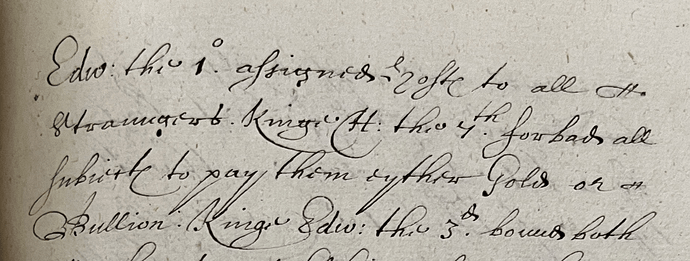 Edw: the 1º. assigned hosts to all
Straungers. Kinge H: the 4th. forbad all
subiects to pay them eyther Gold or
Bullion. Kinge Edw: the 3d. bound both